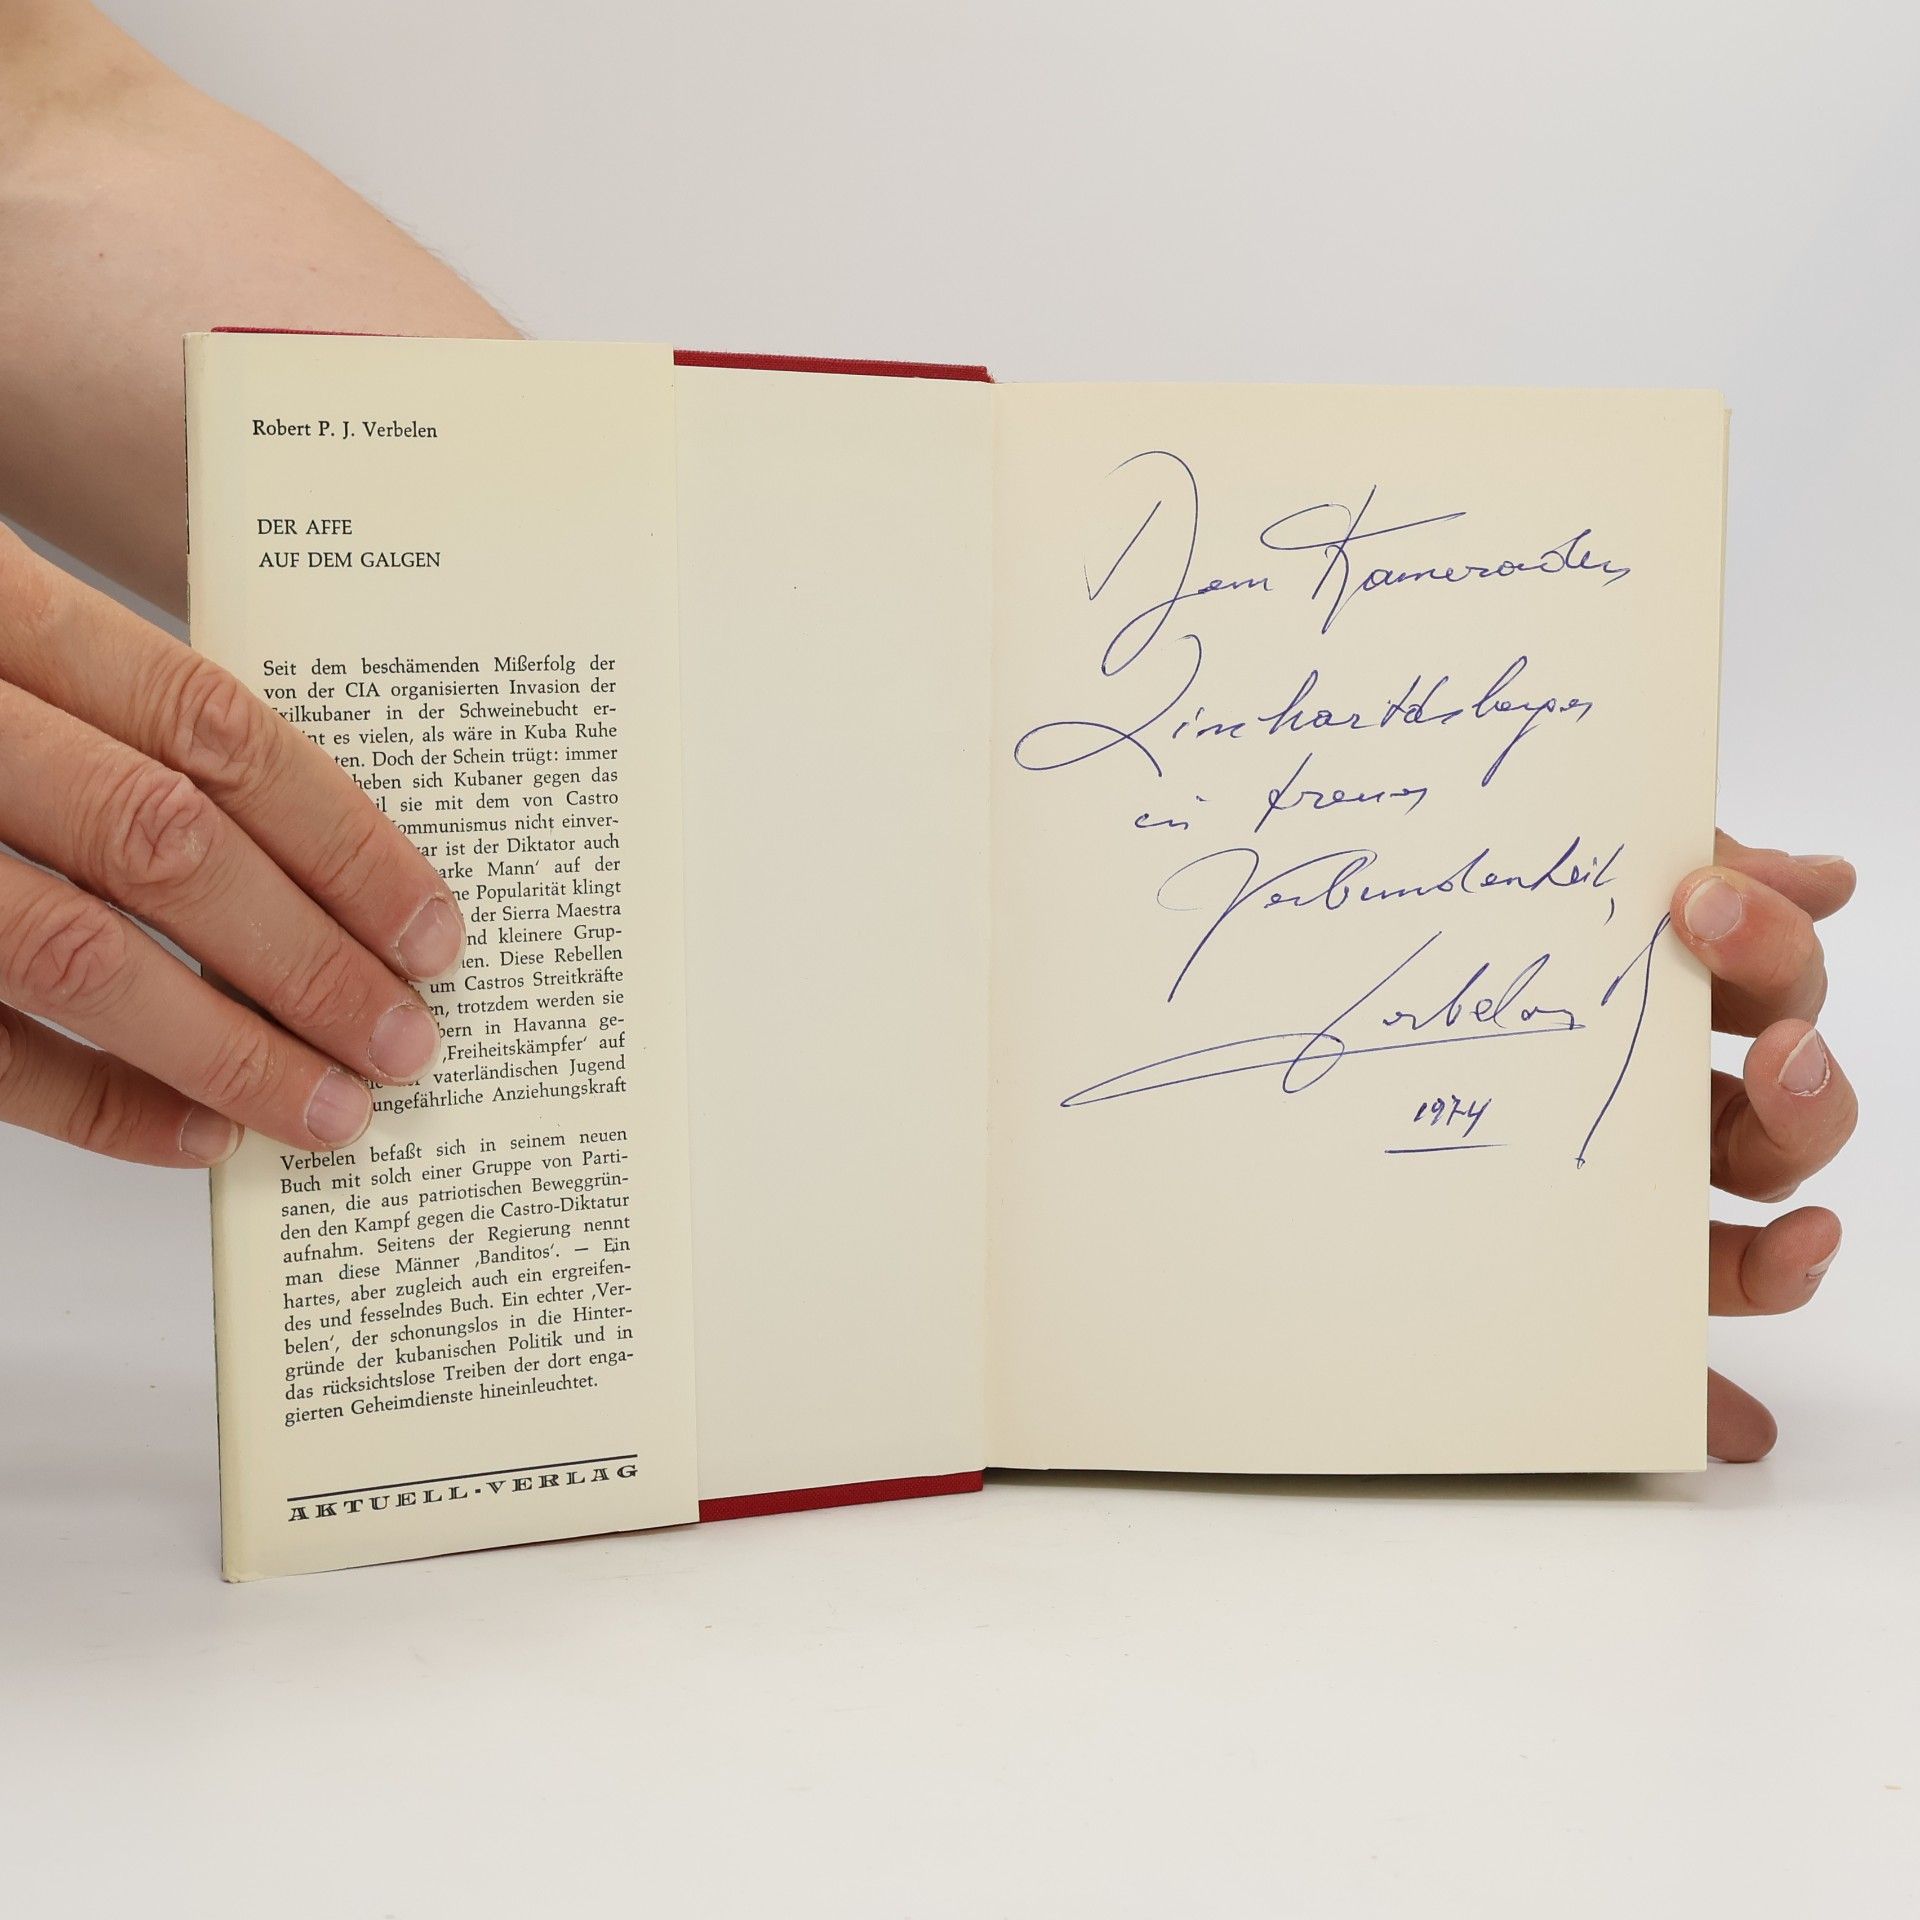 Robert P. J. Verbelen
DER AFFE
AUF DEM GALGEN
Seit dem beschämenden Mißerfolg der
von der CIA organisierten Invasion der
xilkubaner in der Schweinebucht er-
nt es vielen, als wäre in Kuba Ruhe
ten. Doch der Schein trügt: immer
heben sich Kubaner gegen das
il sie mit dem von Castro
ommunismus nicht einver-
ar ist der Diktator auch
arke Mann‘ auf der
ne Popularität klingt
der Sierra Maestra
nd kleinere Grup-
en. Diese Rebellen
um Castros Streitkräfte
n, trotzdem werden sie
bern in Havanna ge-
‚Freiheitskämpfer‘ auf
vaterländischen Jugend
ungefährliche Anziehungskraft
Verbelen befaßt sich in seinem neuen
Buch mit solch einer Gruppe von Parti-
sanen, die aus patriotischen Beweggrün-
den den Kampf gegen die Castro-Diktatur
aufnahm. Seitens der Regierung nennt
man diese Männer ‚Banditos‘. — Ein
hartes, aber zugleich auch ein ergreifen-
des und fesselndes Buch. Ein echter ‚Ver-
belen‘, der schonungslos in die Hinter-
gründe der kubanischen Politik und in
das rücksichtslose Treiben der dort enga-
gierten Geheimdienste hineinleuchtet.
AKTUELL-VERLAG
Dem Kameraden
in treuer
Verbundenheit,
Verbelen
1974